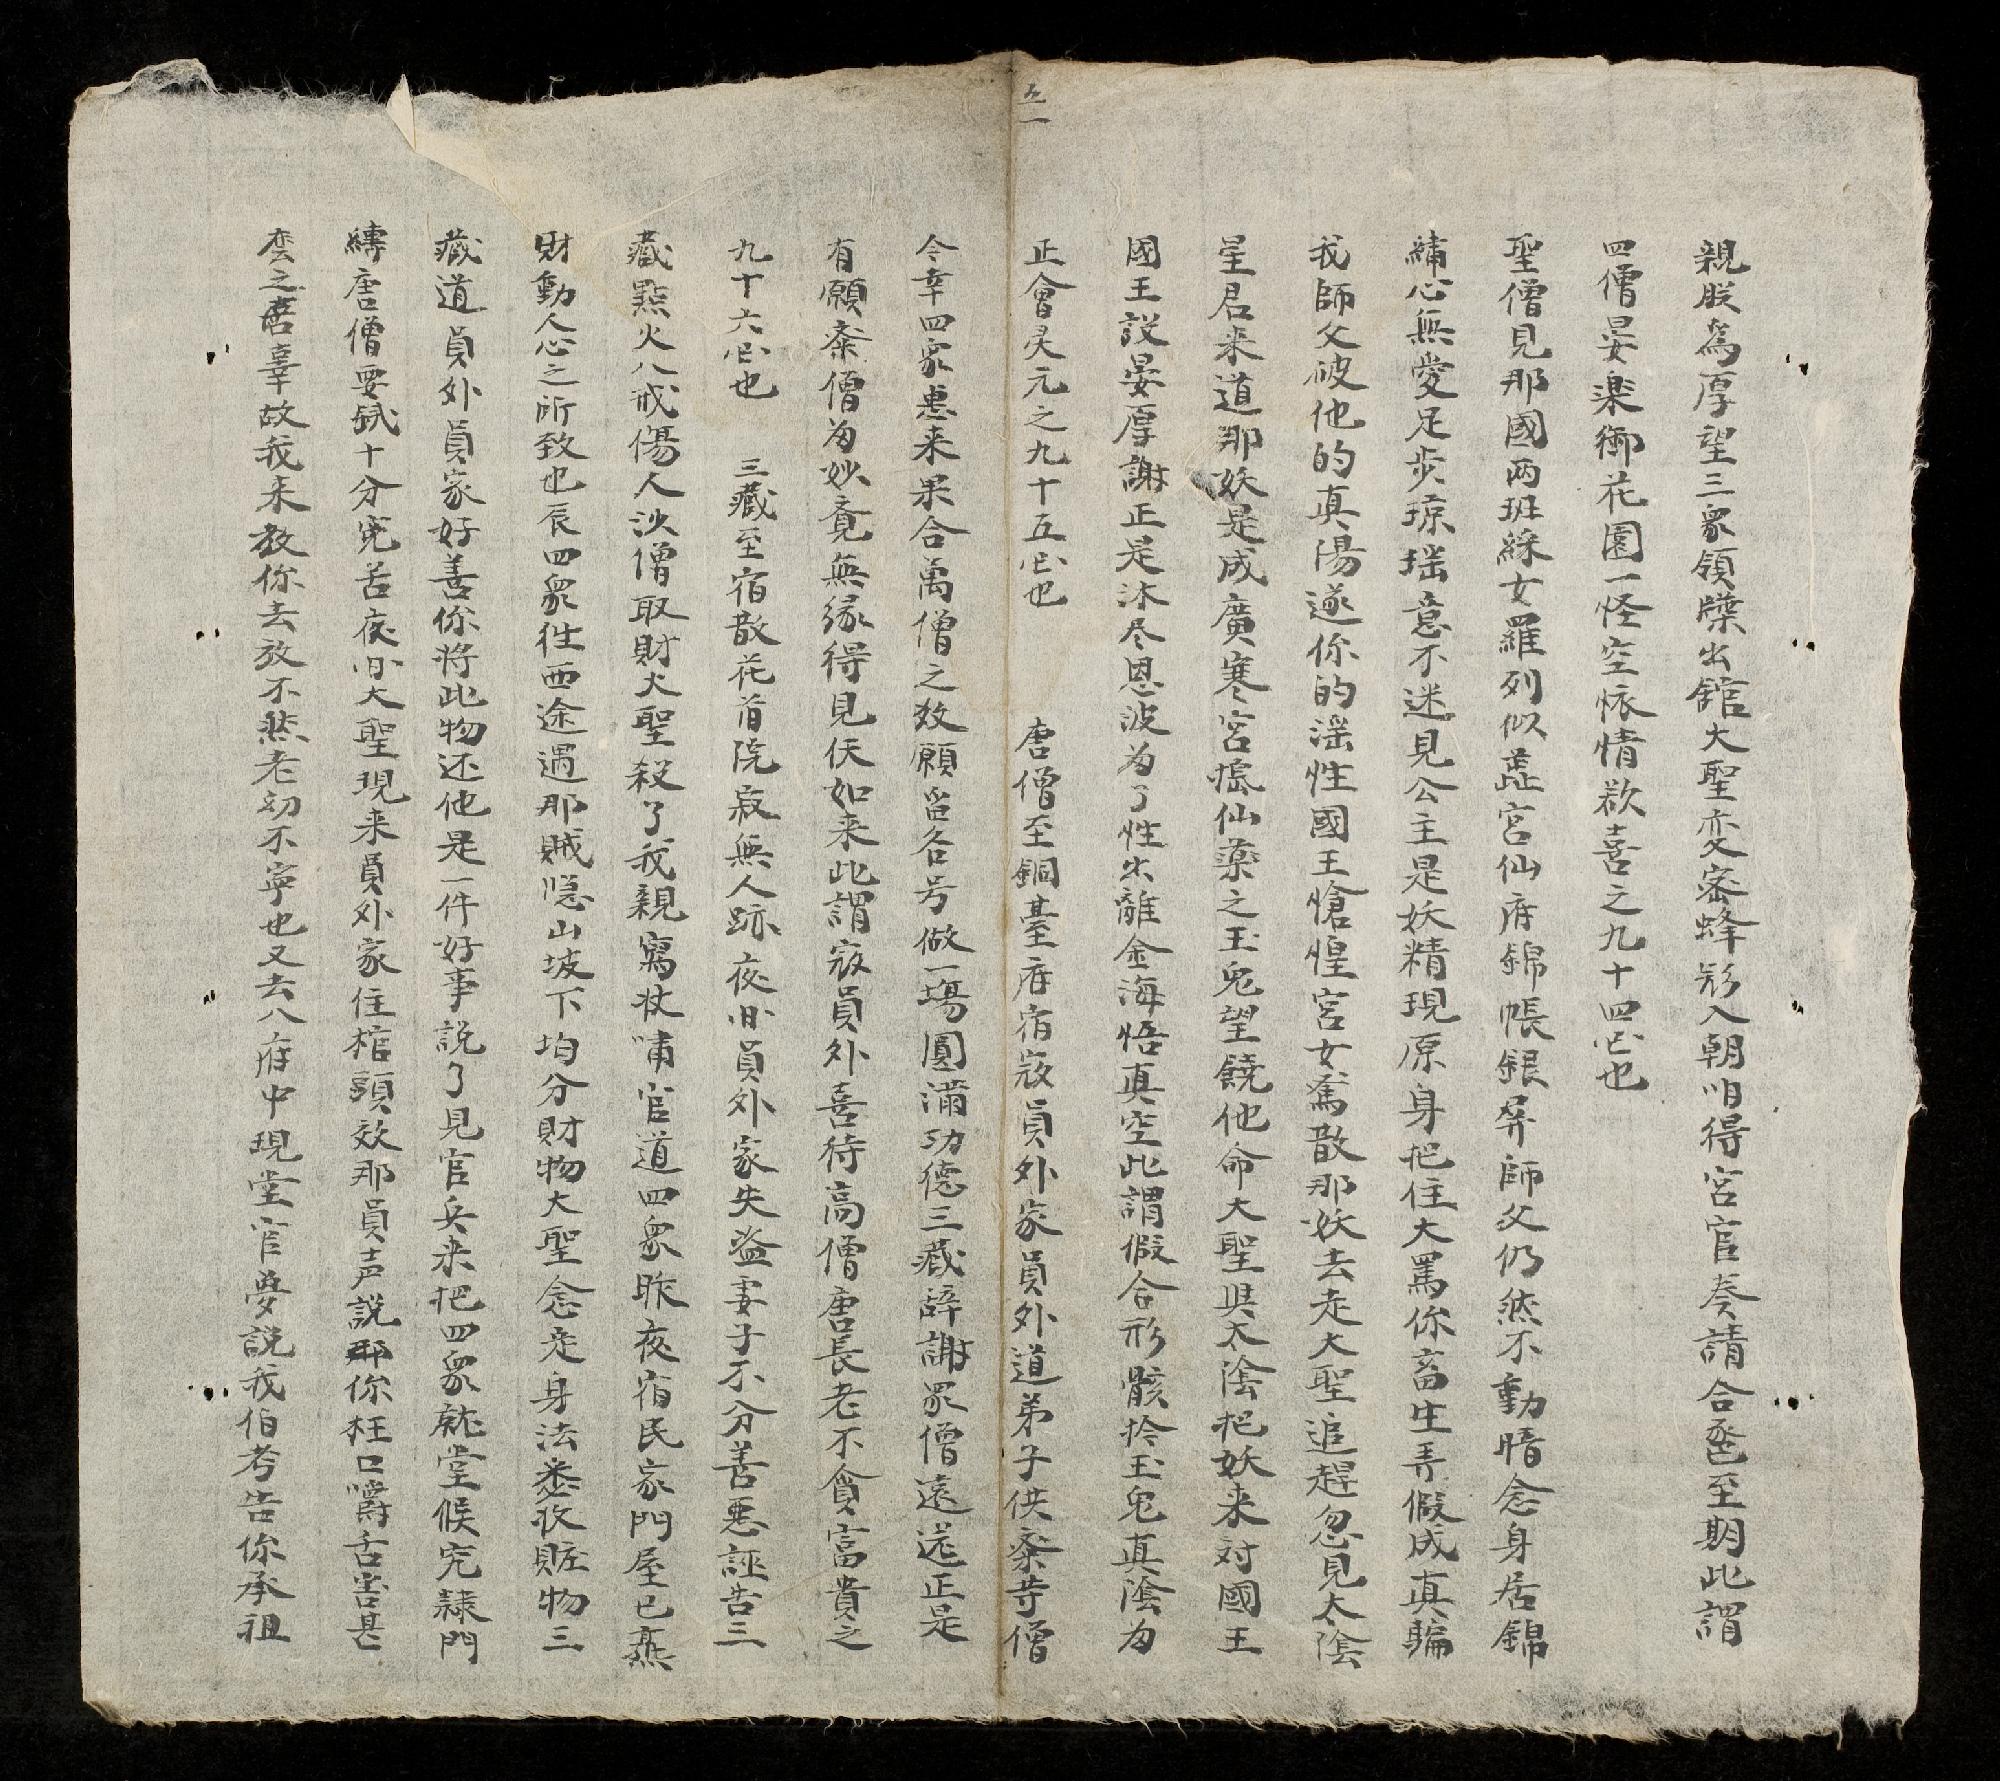 親朕為厚望三衆領牒出舘大聖变密蜂形入朝明得宮官奏請合卺至期此謂
四僧宴楽御花園一怪空懷情欲喜之九十四回也
聖僧見那國両班綵女羅列似蕋宮仙府錦帳銀屏師父仍然不動暗念身居錦
綉心無愛足步琼瑶意不迷見公主是妖精現原身把住大罵你畜生弄假成真騙
我師父破他的真陽遂你的滛性國王愴惶宮女驚散那妖去走大聖追趕忽見太陰
星君来道那妖是成廣寒宮搗仙藥之玉兎望饒他命大聖與太陰把妖来対國王
國王設宴厚謝正是沐尽恩波为了性出離金海悟真空此謂假合形骸拎玉兎真陰为
正會灵元之九十五回也　唐僧至銅臺府宿寇員外家員外道弟子供斋寺僧
今幸四衆惠来果合萬僧之数願留各号做一塲圓滿功德三藏辞謝眾僧遠送正是
有願斋僧为妙竟無縁得見伏如来此謂寇員外喜待高僧唐長老不貪富貴之
九十六回也　三藏至宿散花首院寂無人跡夜间員外家失盜妻子不分善悪誣告三
藏點火八戒傷人沙僧取財大聖殺了我親寫状嘱官道四衆昨夜宿民家門屋已燕
財動人心之所致也辰四衆徃西途遇那賊隠山坡下均分財物大聖念定身法悉收賍物三
藏道員外員家好善你将此物还他是一件好事説了見官兵来把四衆就堂候究隷門
縛唐僧要弑十分寃苦夜间大聖現来員外家住棺頭效那員声説那你枉口嚼舌害甚
庅之唐辜故我来教你去放不然老幼不寧也又去入府中現堂官夢説我伯考告你承祖
五一